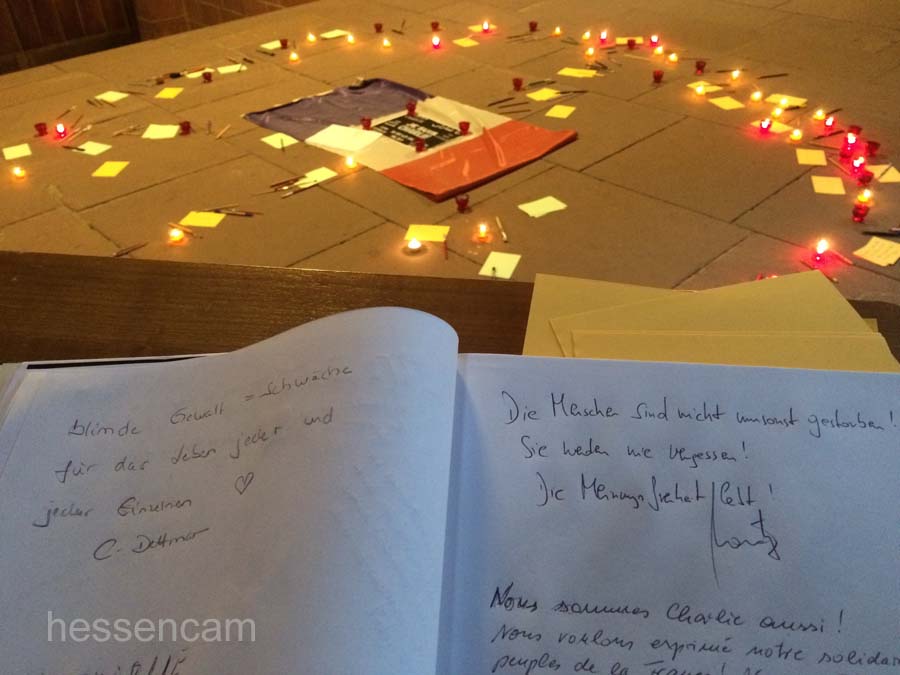 blinde Gewalt = Schwäche
für das Leben jeder und
jeder Einzelnen ♡
C. Dettmar
Die Menschen sind nicht umsonst gestorben!
Sie werden nie vergessen!
Die Meinungsfreiheit lebt!
Nous sommes Charlie aussi!
Nous voulons exprimé notre solidar
peuples de la France!
hessencam